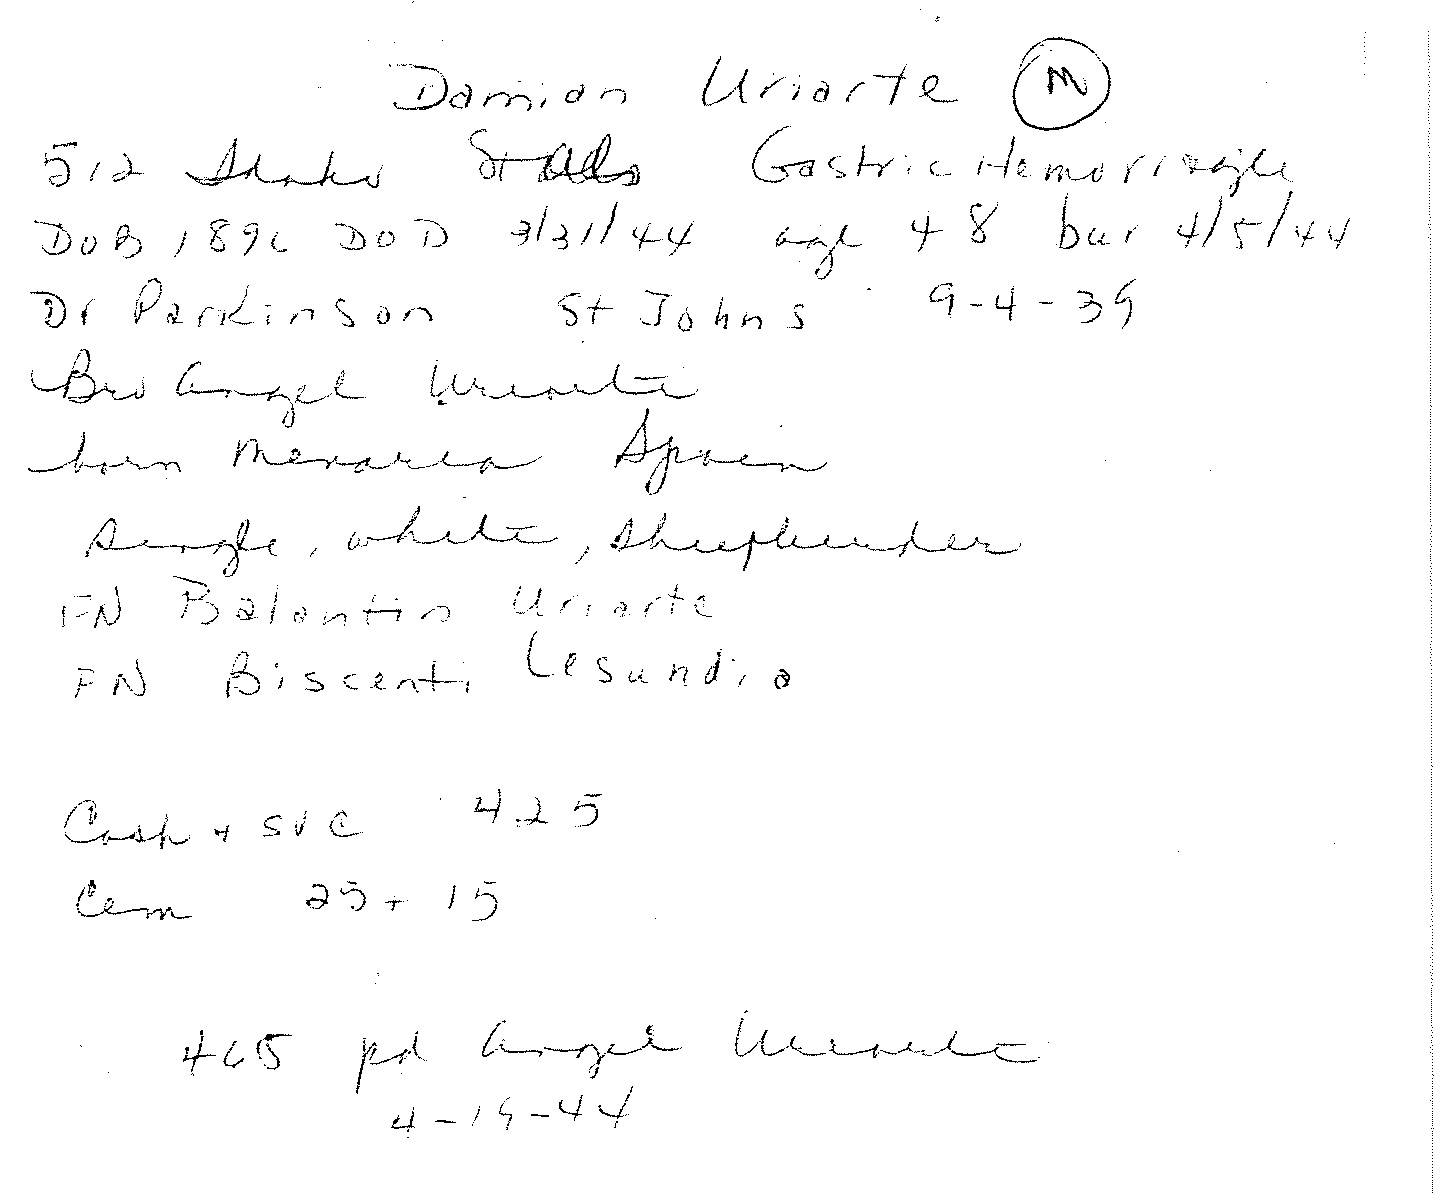 Damian Uriarte M
512 Idaho St Gastric Hemorrhage
DOB 1896 DOD 3/31/44 age 48 bur 4/5/44
Dr Parkinson St Johns 9-4-39
Bro Angel Uriarte
born Menaria Spain
Single, white, Sheepherder
FN Balantin Uriarte
FN Biscenti Lesundia
Cash + svc 425
Cem 25 + 15
465 pd Angel Uriarte
4-19-44